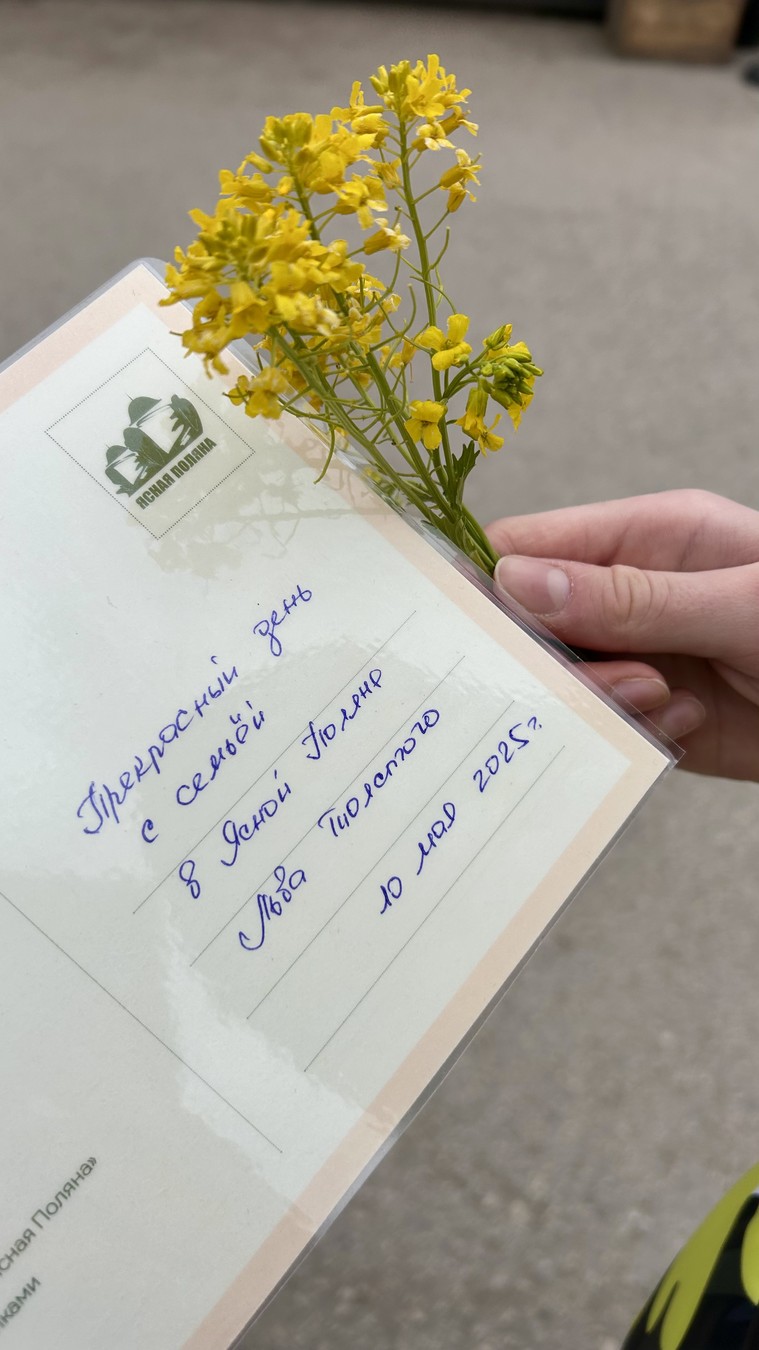 ЯСНАЯ ПОЛЯНА
Прекрасный день
с семьёй
в Ясной Поляне
Льва Толстого
10 мая 2025г.
сная Поляна»
ками